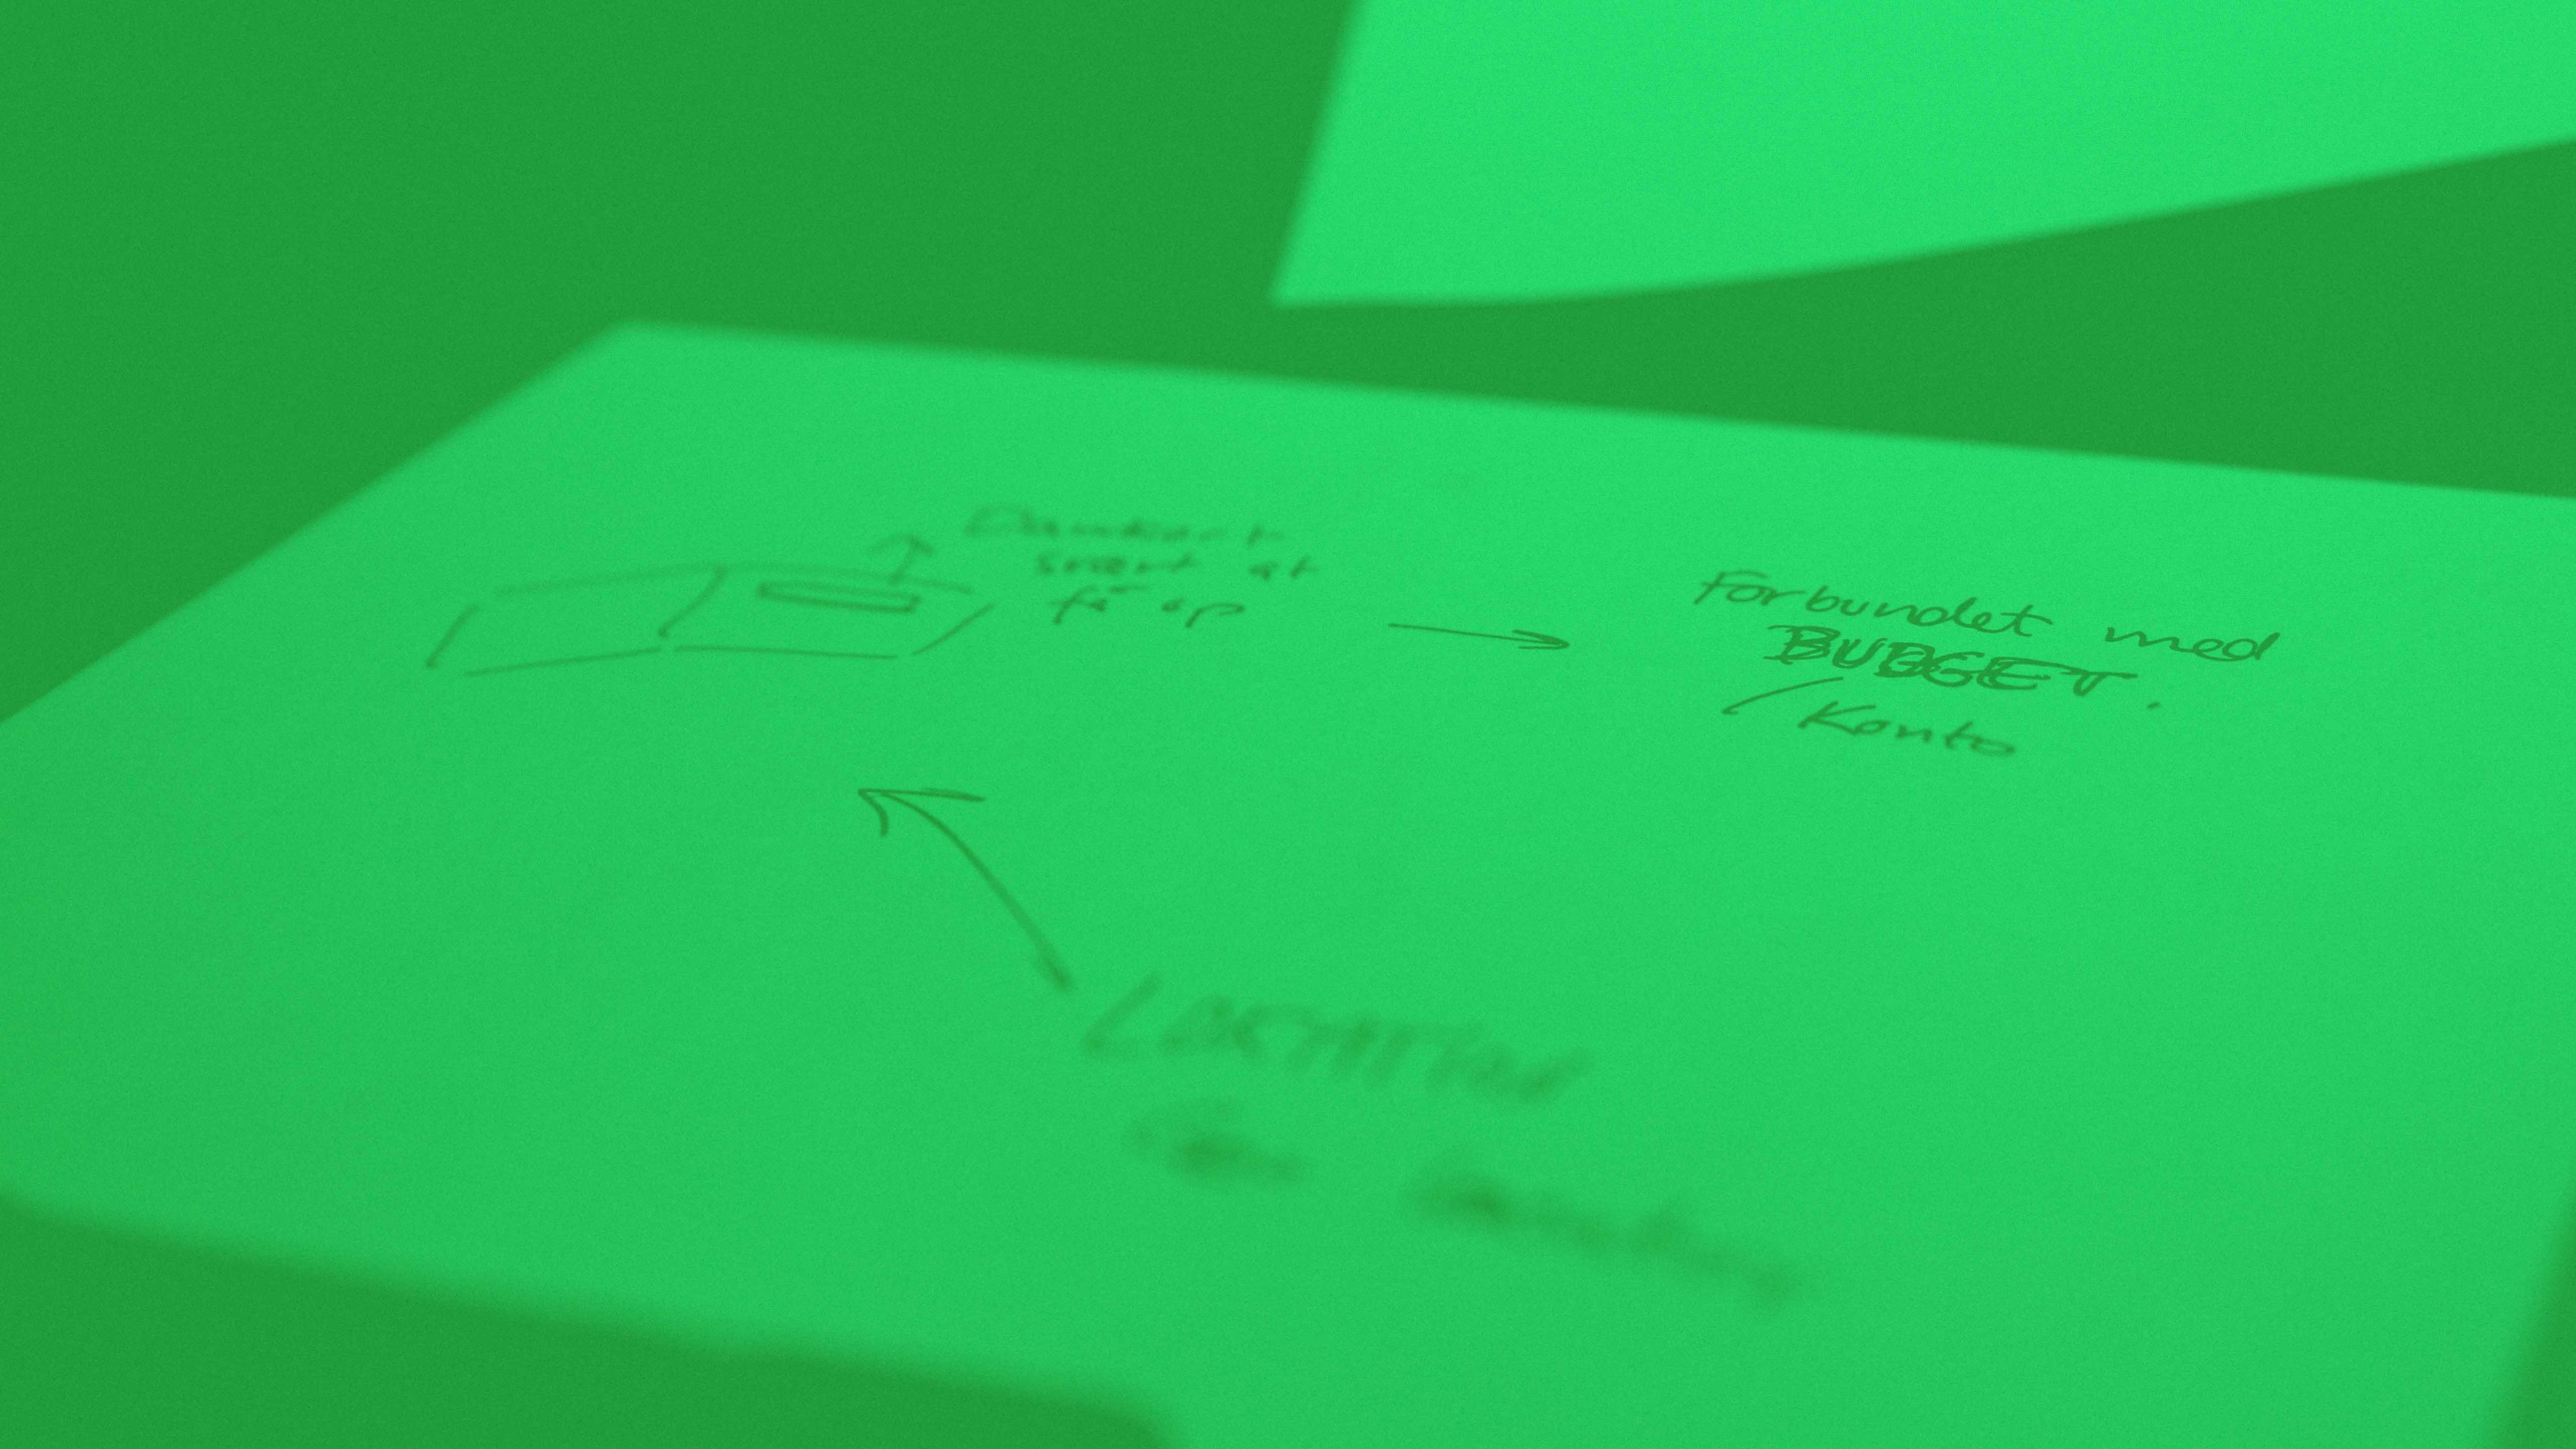 Dankort
svært at
få op
Forbundet med
BUDGET.
/Konto
LOKATION